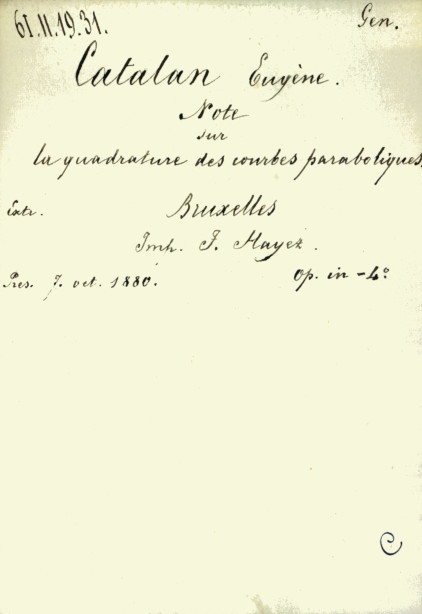 61.II.19.31.
Gen.
Catalan Eugène.
Note
sur
la quadrature des courbes paraboliques,
Extr.
Bruxelles
Imh. F. Hayez.
Pres. 7. oct. 1880.
Op. in -4°
C